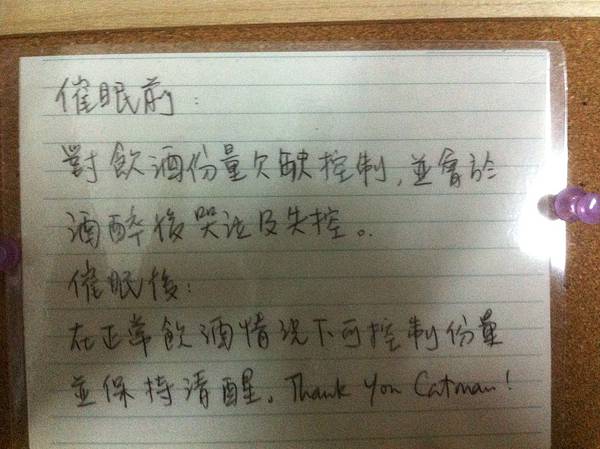 催眠前：
對飲酒份量欠缺控制，並會於
酒醉後哭泣及失控。
催眠後：
在正常飲酒情況下可控制份量
並保持清醒。Thank You Catman!